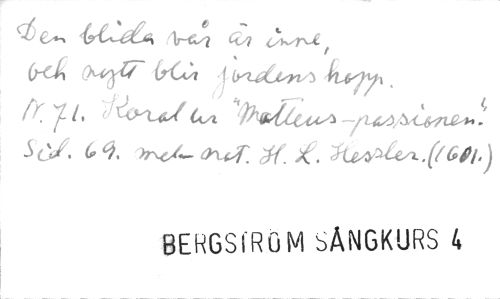 Den blida vår är inne,
och nytt blir jordens hopp.
N. 71. Koral ur "Matteus-passionen".
Sid. 69. mel. not. H. L. Hessler. (1601.)
BERGSTRÖM SÅNGKURS 4